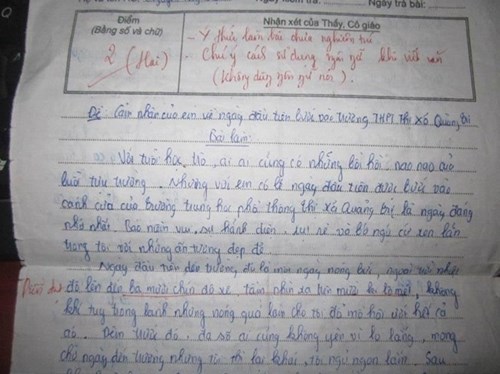 Ngày trả bài:
Điểm
(Bằng số và chữ)
2 (Hai)
Nhận xét của Thầy, Cô giáo
- Ý thức làm bài chưa nghiêm túc.
- Chú ý cách sử dụng ngôn ngữ khi viết văn
(không dùng ngôn ngữ nói).
Đề: Cảm nhận của em về ngày đầu tiên bước vào trường THPT Thị Xã Quảng Trị
Bài làm:
Với tuổi học trò, ai ai cũng có những bồi hồi nao nao của
buổi tựu trường. Nhưng với em có lẽ ngày đầu tiên được bước vào
cánh cửa của trường trung học phổ thông thị xã Quảng Trị là ngày đáng
nhớ nhất. Bao niềm vui, sự hãnh diện, vui vẻ và bỡ ngỡ cứ xen lẫn
trong tôi với những ấn tượng đẹp đẽ
Ngày đầu tiên đến trường, đó là một ngày nóng bức, ngoài trời nhiệt
độ lên đến ba mươi chín độ xê, tầm nhìn xa trên mười ki lô mét, không
khí tuy trong lành nhưng nóng quá làm cho tôi đổ mồ hôi ướt hết cả
áo. Đêm trước đó, đa số ai cũng không yên vì lo lắng, mong
chờ ngày đến trường nhưng tôi thì lại khác, tôi ngủ ngon lắm. Sau